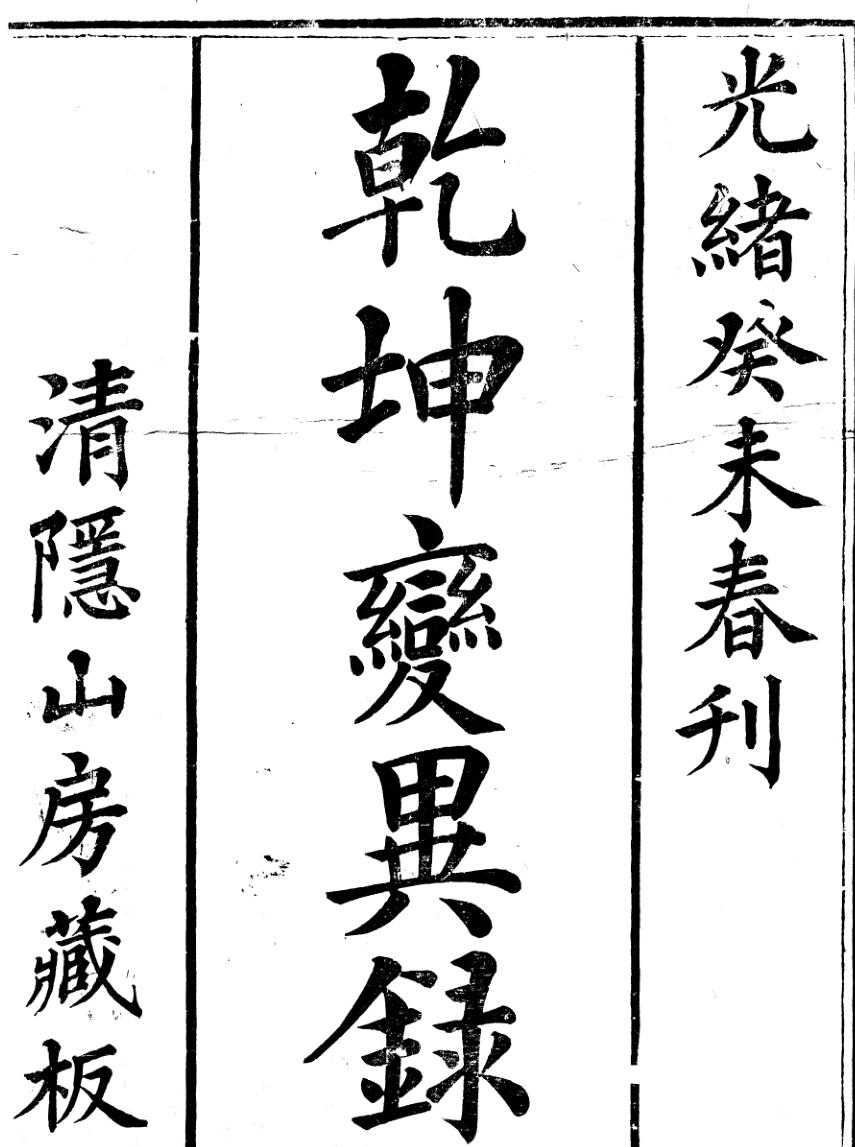 光緒癸未春刊
乾坤變異錄
清隱山房藏板